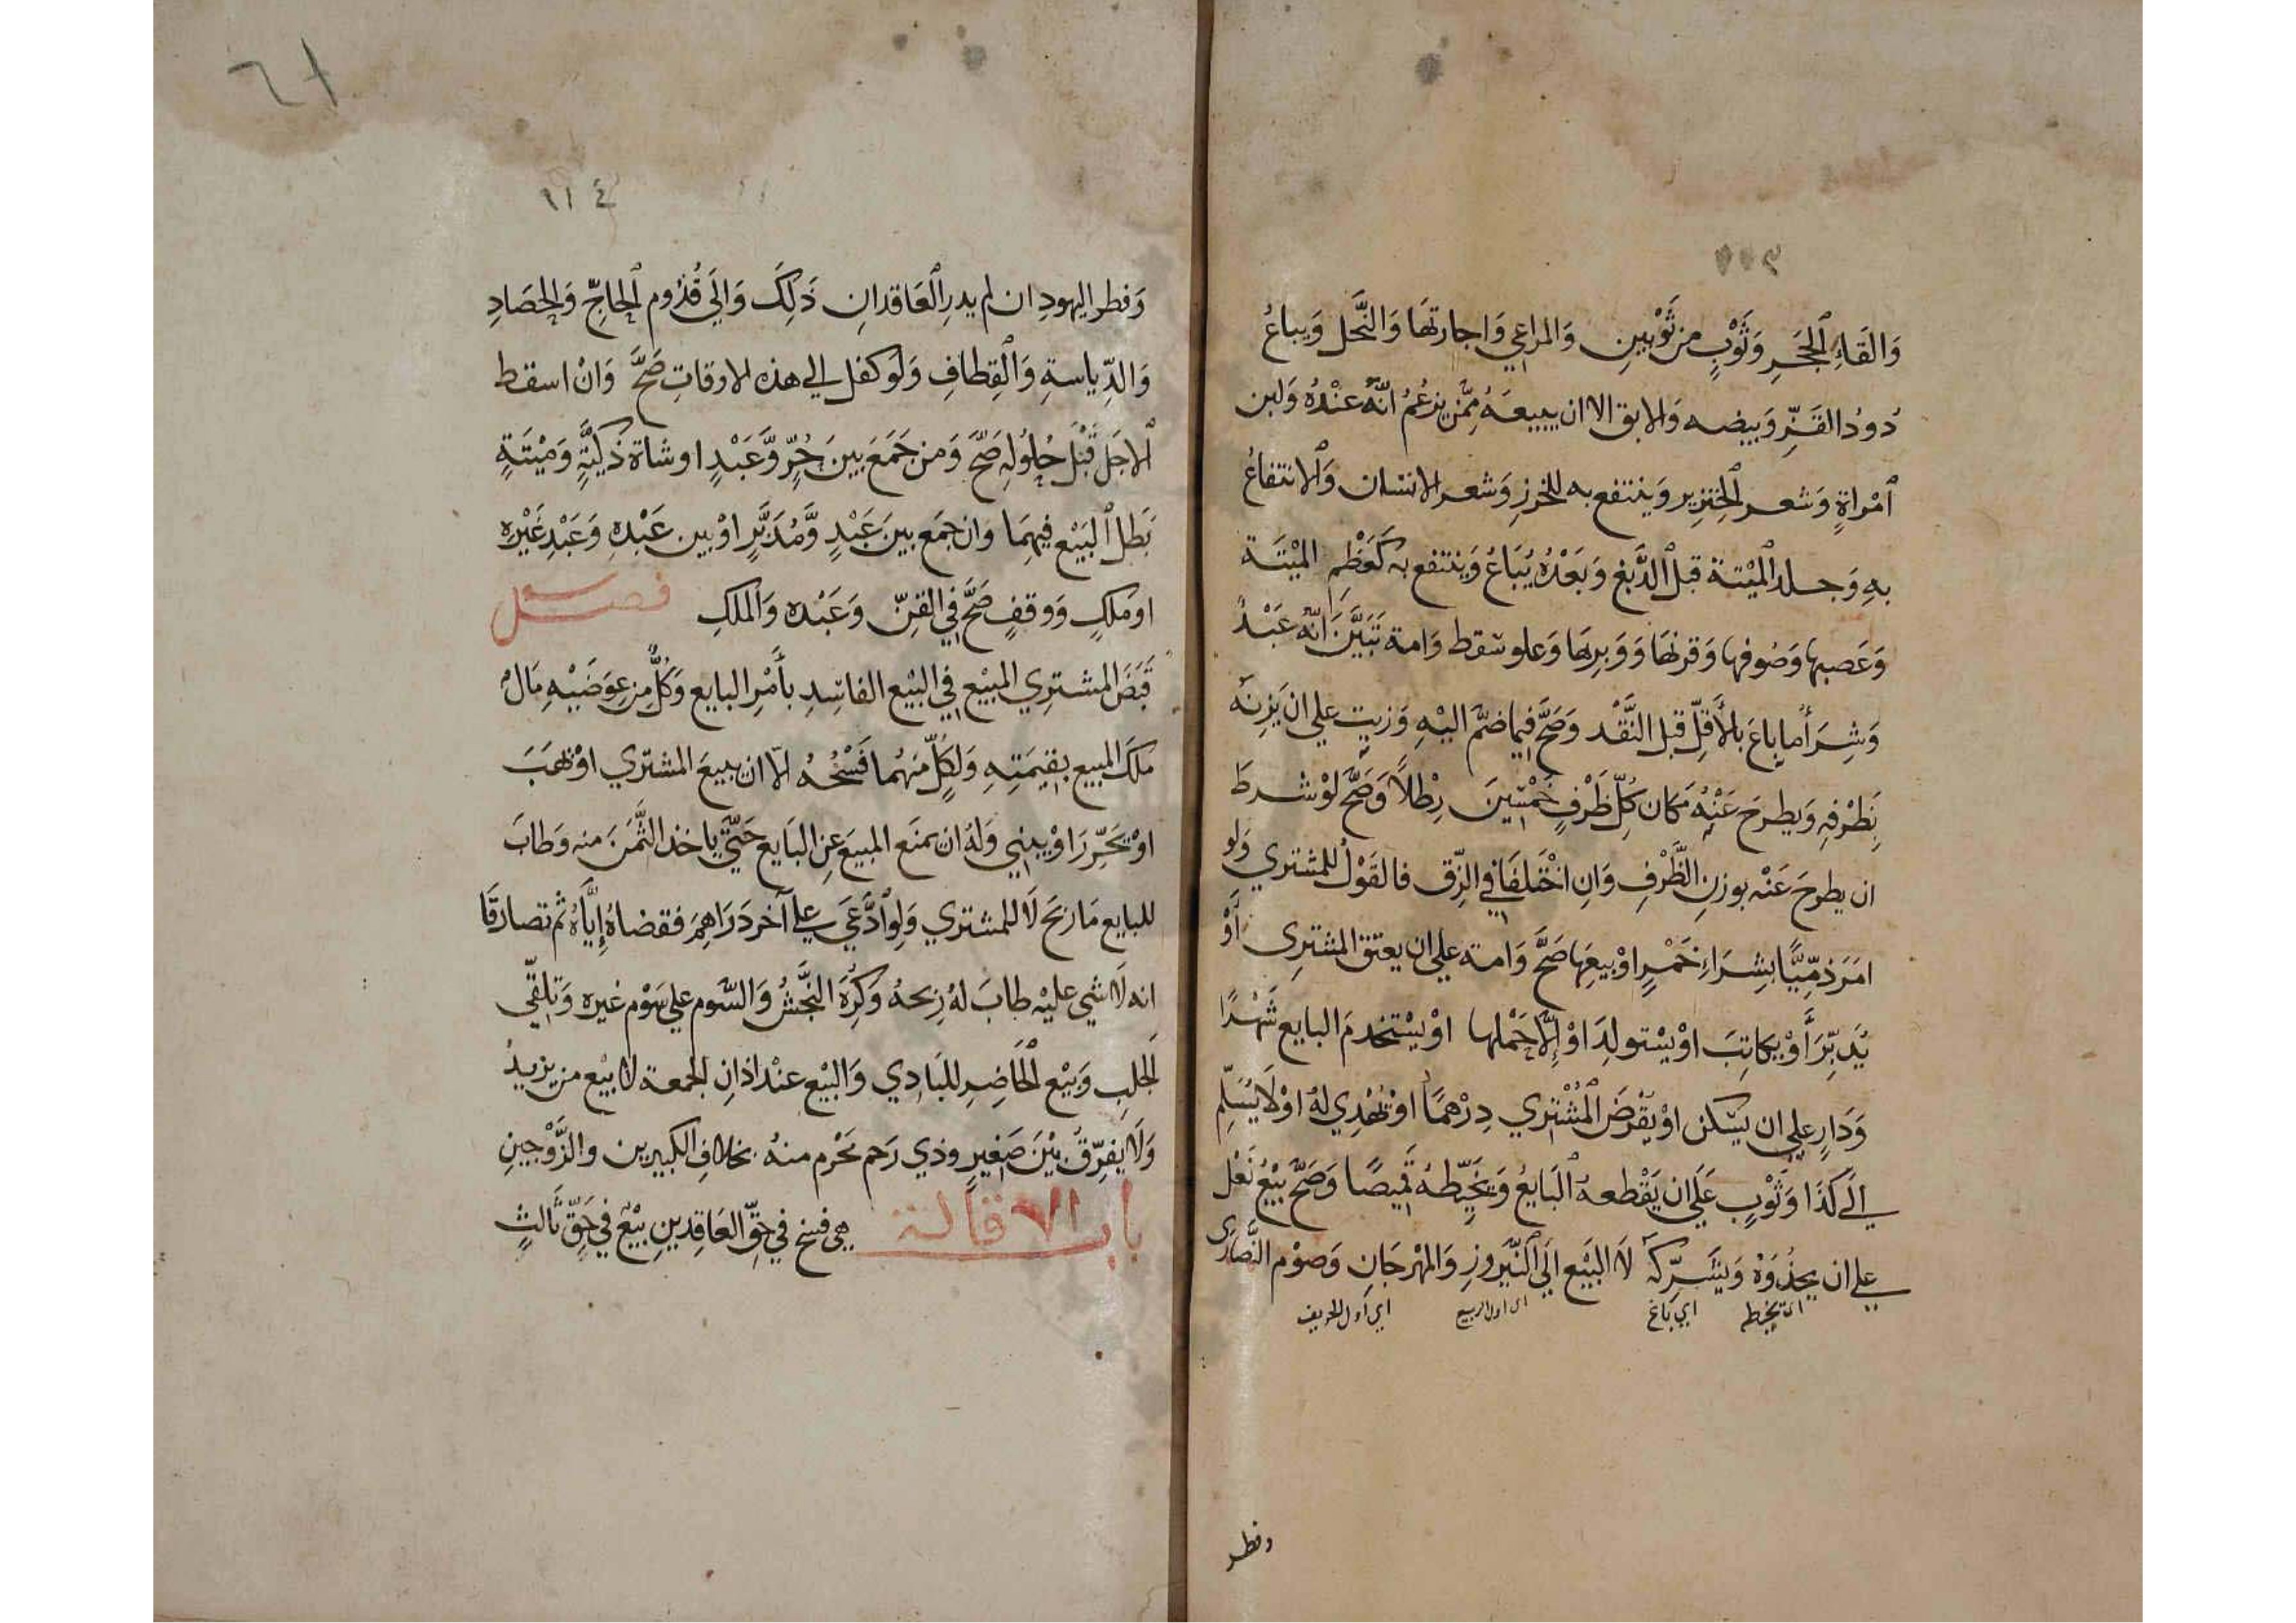 وَالقَاءِ الحَجَرِ وَثَوْبٍ من ثَوْبينِ وَالمراعي وَاجارتهَا وَالنَّحل وَيباعُ
دُودُ القَزِّ وَبيضه وَالابق الا ان يبيعَهُ مِمَّن يزعُمُ انّهُ عنْدهُ وَلبن
امْراةٍ وَشعر الخنزير وَينتفع به للخرزِ وَشعر الانسان وَالانتفاعُ
بهِ وَجلد الميْتة قبل الدَّبغِ وَبَعْدهُ يُبَاعُ وَينتفع به كَعَظْمِ الميْتَة
وَعَصبها وَصُوفها وَقرنهَا وَوَبرِهَا وَعلو سَقط وَامة تَبَيَّنَ انّه عَبْدٌ
وَشِرَأ ما باعَ بالأقلِّ قبل النَّقْد وَصَحَّ فيما ضمَّ اليْهِ وَزيت علي ان يَزنَهُ
بَظرْفهِ وَيطرحَ عَنْهُ مَكان كلِّ ظَرْفٍ خمْسينَ رِطْلاً وَصَحَّ لوْ شرطَ
ان يطرحَ عَنْه بوزنِ الظَّرْفِ وَانِ اخْتَلفَا في الزِّق فالقَوْلُ للمشتري وَلو
امَرَ ذمِّيًّا بِشِرَاءِ خَمْرٍ اوْ بيعِهَا صَحَّ وَامة علي ان يعتق المشترِى أَوْ
يُدَبِّرَ أَوْ يكاتِبَ اوْ يسْتولدَ اوْ إلّا حَمْلها اوْ يسْتخدمَ البايع شَهْرًا
وَدَارٍ علي ان يسْكن اوْ يقْرضَ المُشْترِي دِرْهَمًا اوْ يُهْدِي لهُ اوْ لَا يُسَلِّم
الَي كَذَا وَثوْبٍ عَلَي ان يَقْطعهُ البَايعُ وَيُخَيّطهُ قَميصًا وَصَحَّ بيْعُ نَعْل
علي ان يحذُوَهُ وَيشَرِّكهُ لَا البَيْع الَي النَّيروزِ وَالمهْرجَانِ وَصوْم النَّصَارَى
اى يخيطه اي باغ اى اول الربيع اي اول الخريف
وفطر
٦١
٩١٤
وَفطر اليهودِ ان لم يدرِ العَاقدانِ ذَلكَ وَالَي قُدُوم الحاجِّ وَالحصَادِ
وَالدِّياسةِ وَالْقطافِ وَلوْ كفل الي هذه الاوقاتِ صَحَّ وَانْ اسقط
الاجَلَ قَبْلَ حُلوُلهِ صَحَّ وَمن جَمَعَ بينَ حُرٍّ وَّعَبْدٍ اوشاة ذَكيَّةٍ وَميْتَةٍ
بَطل البَيْع فيهمَا وَان جمَع بينَ عَبْدٍ وَّمُدَبَّرٍ اوْ بين عَبْدهِ وَعَبْدِ غَيْرهِ
او ملكٍ وَوقفٍ صَحَّ في القنِّ وَعَبْده وَالملكِ فصل
قَبَضَ المشترِي المبيْع في البيْع الفاسِدِ بأَمْرِ البايع وَكُلٌّ من عوَضَيْهِ مَالٌ
ملكَ المبيع بقيمَتهِ وَلكُلٍّ منهُما فَسْخُهُ الّا ان يبيعَ المشتري اوْ يَهَبَ
اوْ يحَرِّرَ اوْ يبني وَلهُ ان يمنَع المبيَع عنِ البَايع حَتَّي ياخذ الثَّمَنَ منه وَطابَ
للبايع مَا ربحَ لَا للمشتري وَلوِ ادَّعَي علي آخر دَرَاهِمَ فقضاهُ إيَّاهُ ثم تصادقَا
انه لَا شي عليْه طابَ لهُ ربحهُ وَكُرِهَ النَّجَْشُ وَالسَّوم علي سَوْم غيره وَتلقّي
الجلبِ وَبيْع الحَاضرِ للبَادِي وَالبيْع عنْد اذانِ الجمعة لا بيْع من يزيدُ
وَلَا يفرِّقُ بيْنَ صَغيرٍ وذي رَحم مَحْرم منهُ بخلافِ الكبيرين والزَّوْجينِ
باب الاقالة هي فسخ في حقِّ العَاقِدينِ بيْعٌ في حَقِّ ثالثٍ